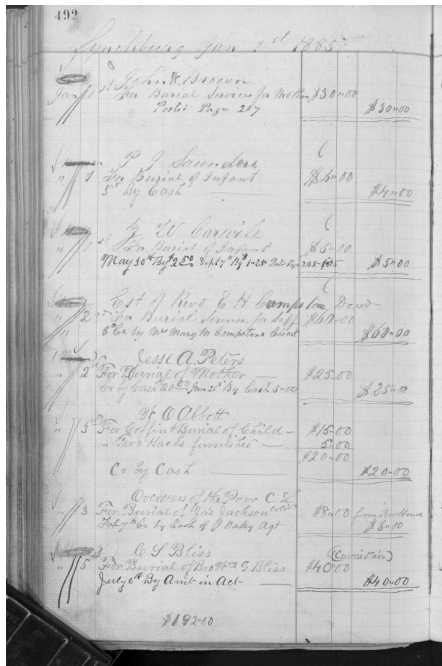 492
Lynchburg Jan 1st 1885
John W Brown
Jan 1 For Burial Services for Mother $30-00
Posted Page 207 $30-00
P J Saunders
" 1 For Burial of Infant $4-00
By Cash $4-00
W Carwile
" 1 For Burial of Infant $5-00
May 30th By $2.50 Sept 7th By $1-25 $5-00
Est of Revd E H Compston Decd
" 2 For Burial Services for Self $60-00
Cr by Mrs Mary M Compston $60-00
Jesse A Peters
" 2 For Burial of Mother $25-00
Cr by Cash 20-00 Jan 21st By Cash 5-00 $25-00
C Abbott
" 5 For Coffin & Burial of Child $15-00
" For Hacks furnished 5-00
$20-00
Cr by Cash $20-00
Overseers of the Poor C of L
" 3 For Burial of Jas Jackson $8-00
Feb 7th Cr by Cash of J Oakey Agt $8-00
C S Bliss
" 5 For Burial of Bro G Bliss $40-00
July 6th By Amt in Act $40-00
$192-00